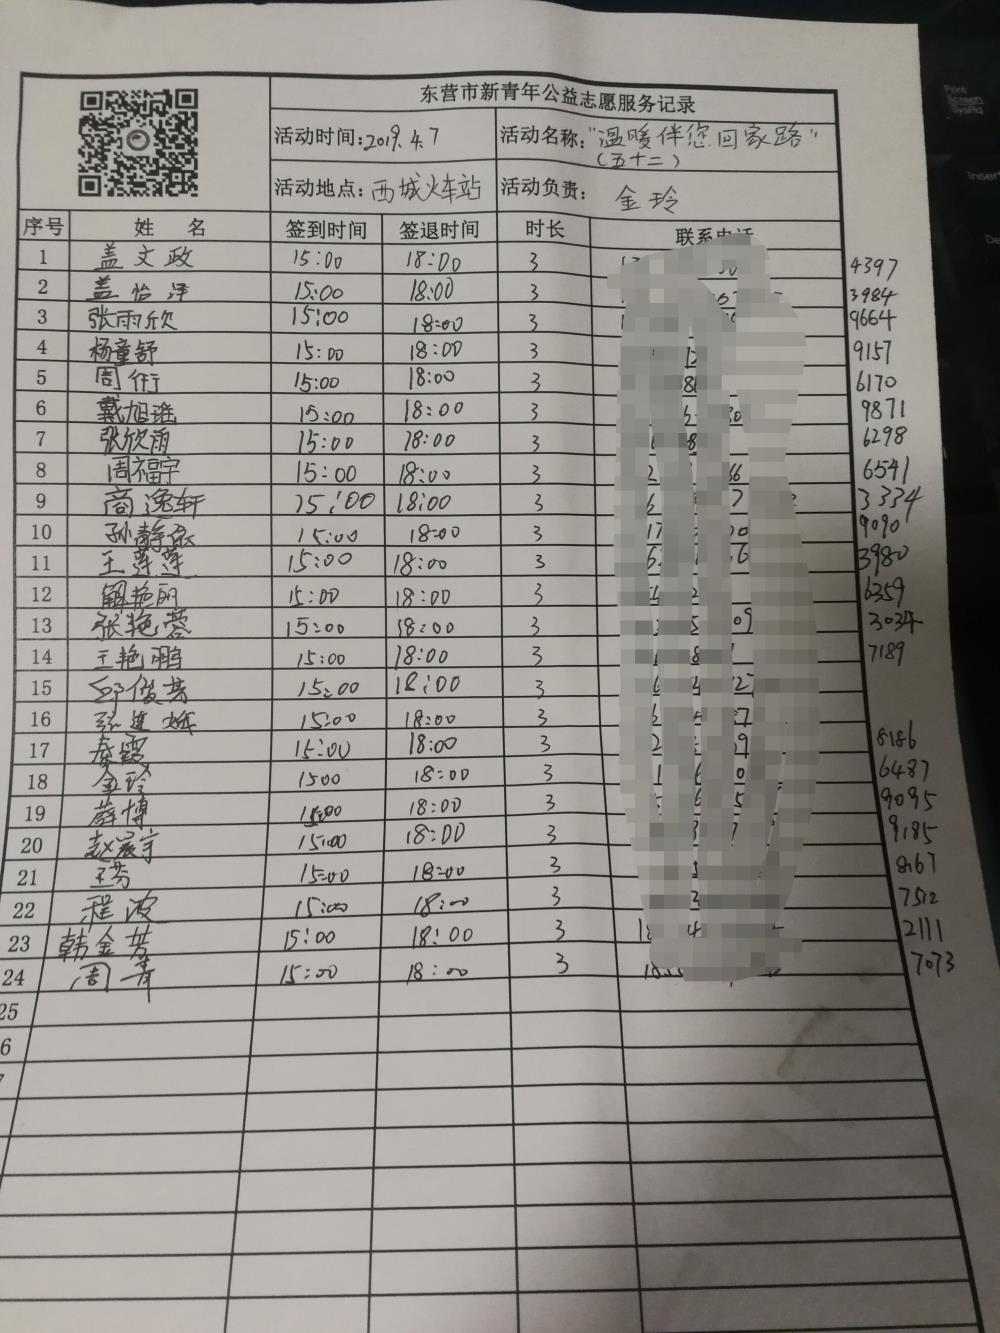 东营市新青年公益志愿服务记录
活动时间:2019.4.7 活动名称:"温暖伴您回家路"
(五十二)
活动地点:西城火车站 活动负责:金玲
序号 姓 名 签到时间 签退时间 时长 联系电话
1 盖文政 15:00 18:00 3 4397
2 盖怡泽 15:00 18:00 3 3984
3 张雨欣 15:00 18:00 3 9664
4 杨童舒 15:00 18:00 3 9157
5 周衍 15:00 18:00 3 6170
6 戴旭瑶 15:00 18:00 3 9871
7 张欣雨 15:00 18:00 3 6298
8 周福宇 15:00 18:00 3 6541
9 商逸轩 15:00 18:00 3 3334
10 孙静依 15:00 18:00 3 9090
11 王莲莲 15:00 18:00 3 3980
12 解艳丽 15:00 18:00 3 6359
13 张艳蓉 15:00 18:00 3 3034
14 王艳鹏 15:00 18:00 3 7189
15 邱俊芳 15:00 18:00 3
16 张连娥 15:00 18:00 3
17 秦霞 15:00 18:00 3 8186
18 金玲 1500 18:00 3 6487
19 薛博 15:00 18:00 3 9095
20 赵宸宇 15:00 18:00 3 9185
21 王芬 15:00 18:00 3 8167
22 程波 15:00 18:00 3 7512
23 韩金芳 15:00 18:00 3 2111
24 周青 15:00 18:00 3 7073
25
6
7
Print
Screen
SysRq
Insert